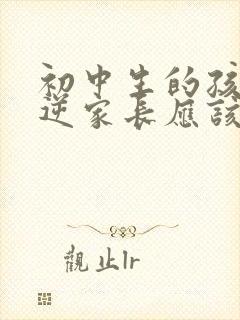 初中生的孩
逆家长应该
觀止lr